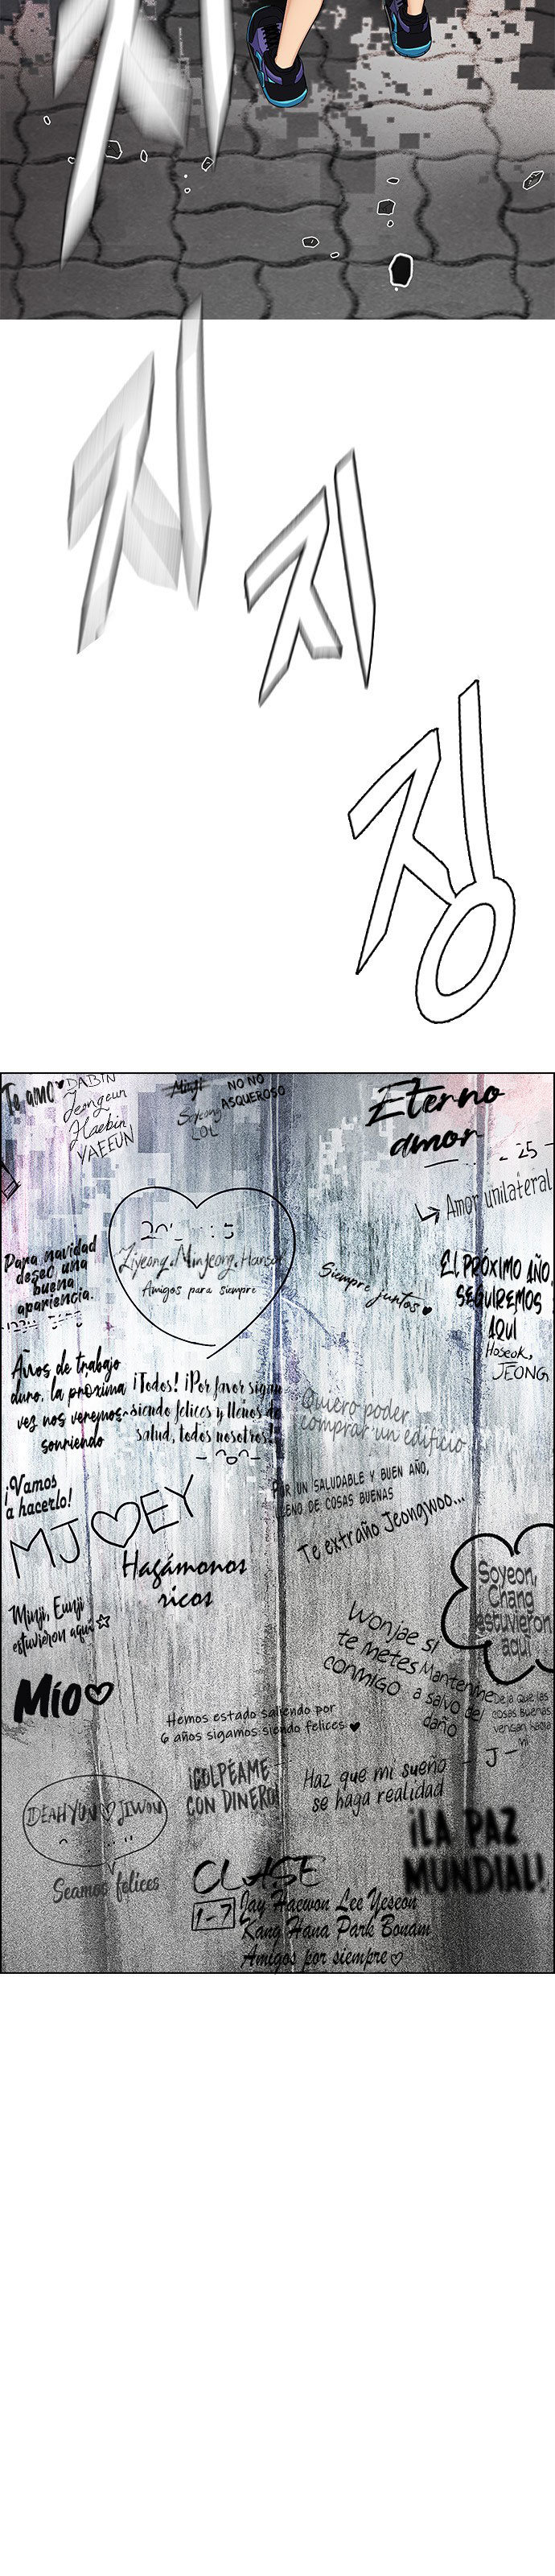 지
지
징
Te amo♥
DABIN
Jeongeun
Haebin
YAEEUN
Minji
Soyeong
LOL
NO NO
ASQUEROSO
Eterno
amor
- 25 -
Amor unilateral
Ziyeong. Minjeong. Hansol
Amigos para siempre
Para navidad
deseo una
buena
apariencia.
Siempre juntos♥
EL PRÓXIMO AÑO
SEGUIREMOS
AQUI
Hoseok,
JEONG
Años de trabajo
duro, la próxima
vez nos veremos
sonriendo
¡Todos! ¡Por favor sigan
siendo felices y llenos de
salud, todos nosotros!
Quiero poder
comprar un edificio
¡Vamos
a hacerlo!
POR UN SALUDABLE Y BUEN AÑO,
LLENO DE COSAS BUENAS
MJ♡EY
Te extraño Jeongwoo...
Hagámonos
ricos
Soyeon,
Chang
estuvieron
aquí
Minji, Eunji
estuvieron aquí☆
Wonjae si
te metes
conmigo
Mantenme
a salvo del
daño
Deja que las
cosas buenas
vengan hacia
mí
Mío♡
Hemos estado saliendo por
6 años sigamos siendo felices ♥
- J -
¡GOLPÉAME
CON DINERO!
Haz que mi sueño
se haga realidad
DEAHYUN♡JIWON
¡LA PAZ
MUNDIAL!
Seamos felices
CLASE
1-7
Jay Haewon Lee Yeseon
Kang Hana Park Bonam
Amigos por siempre♡